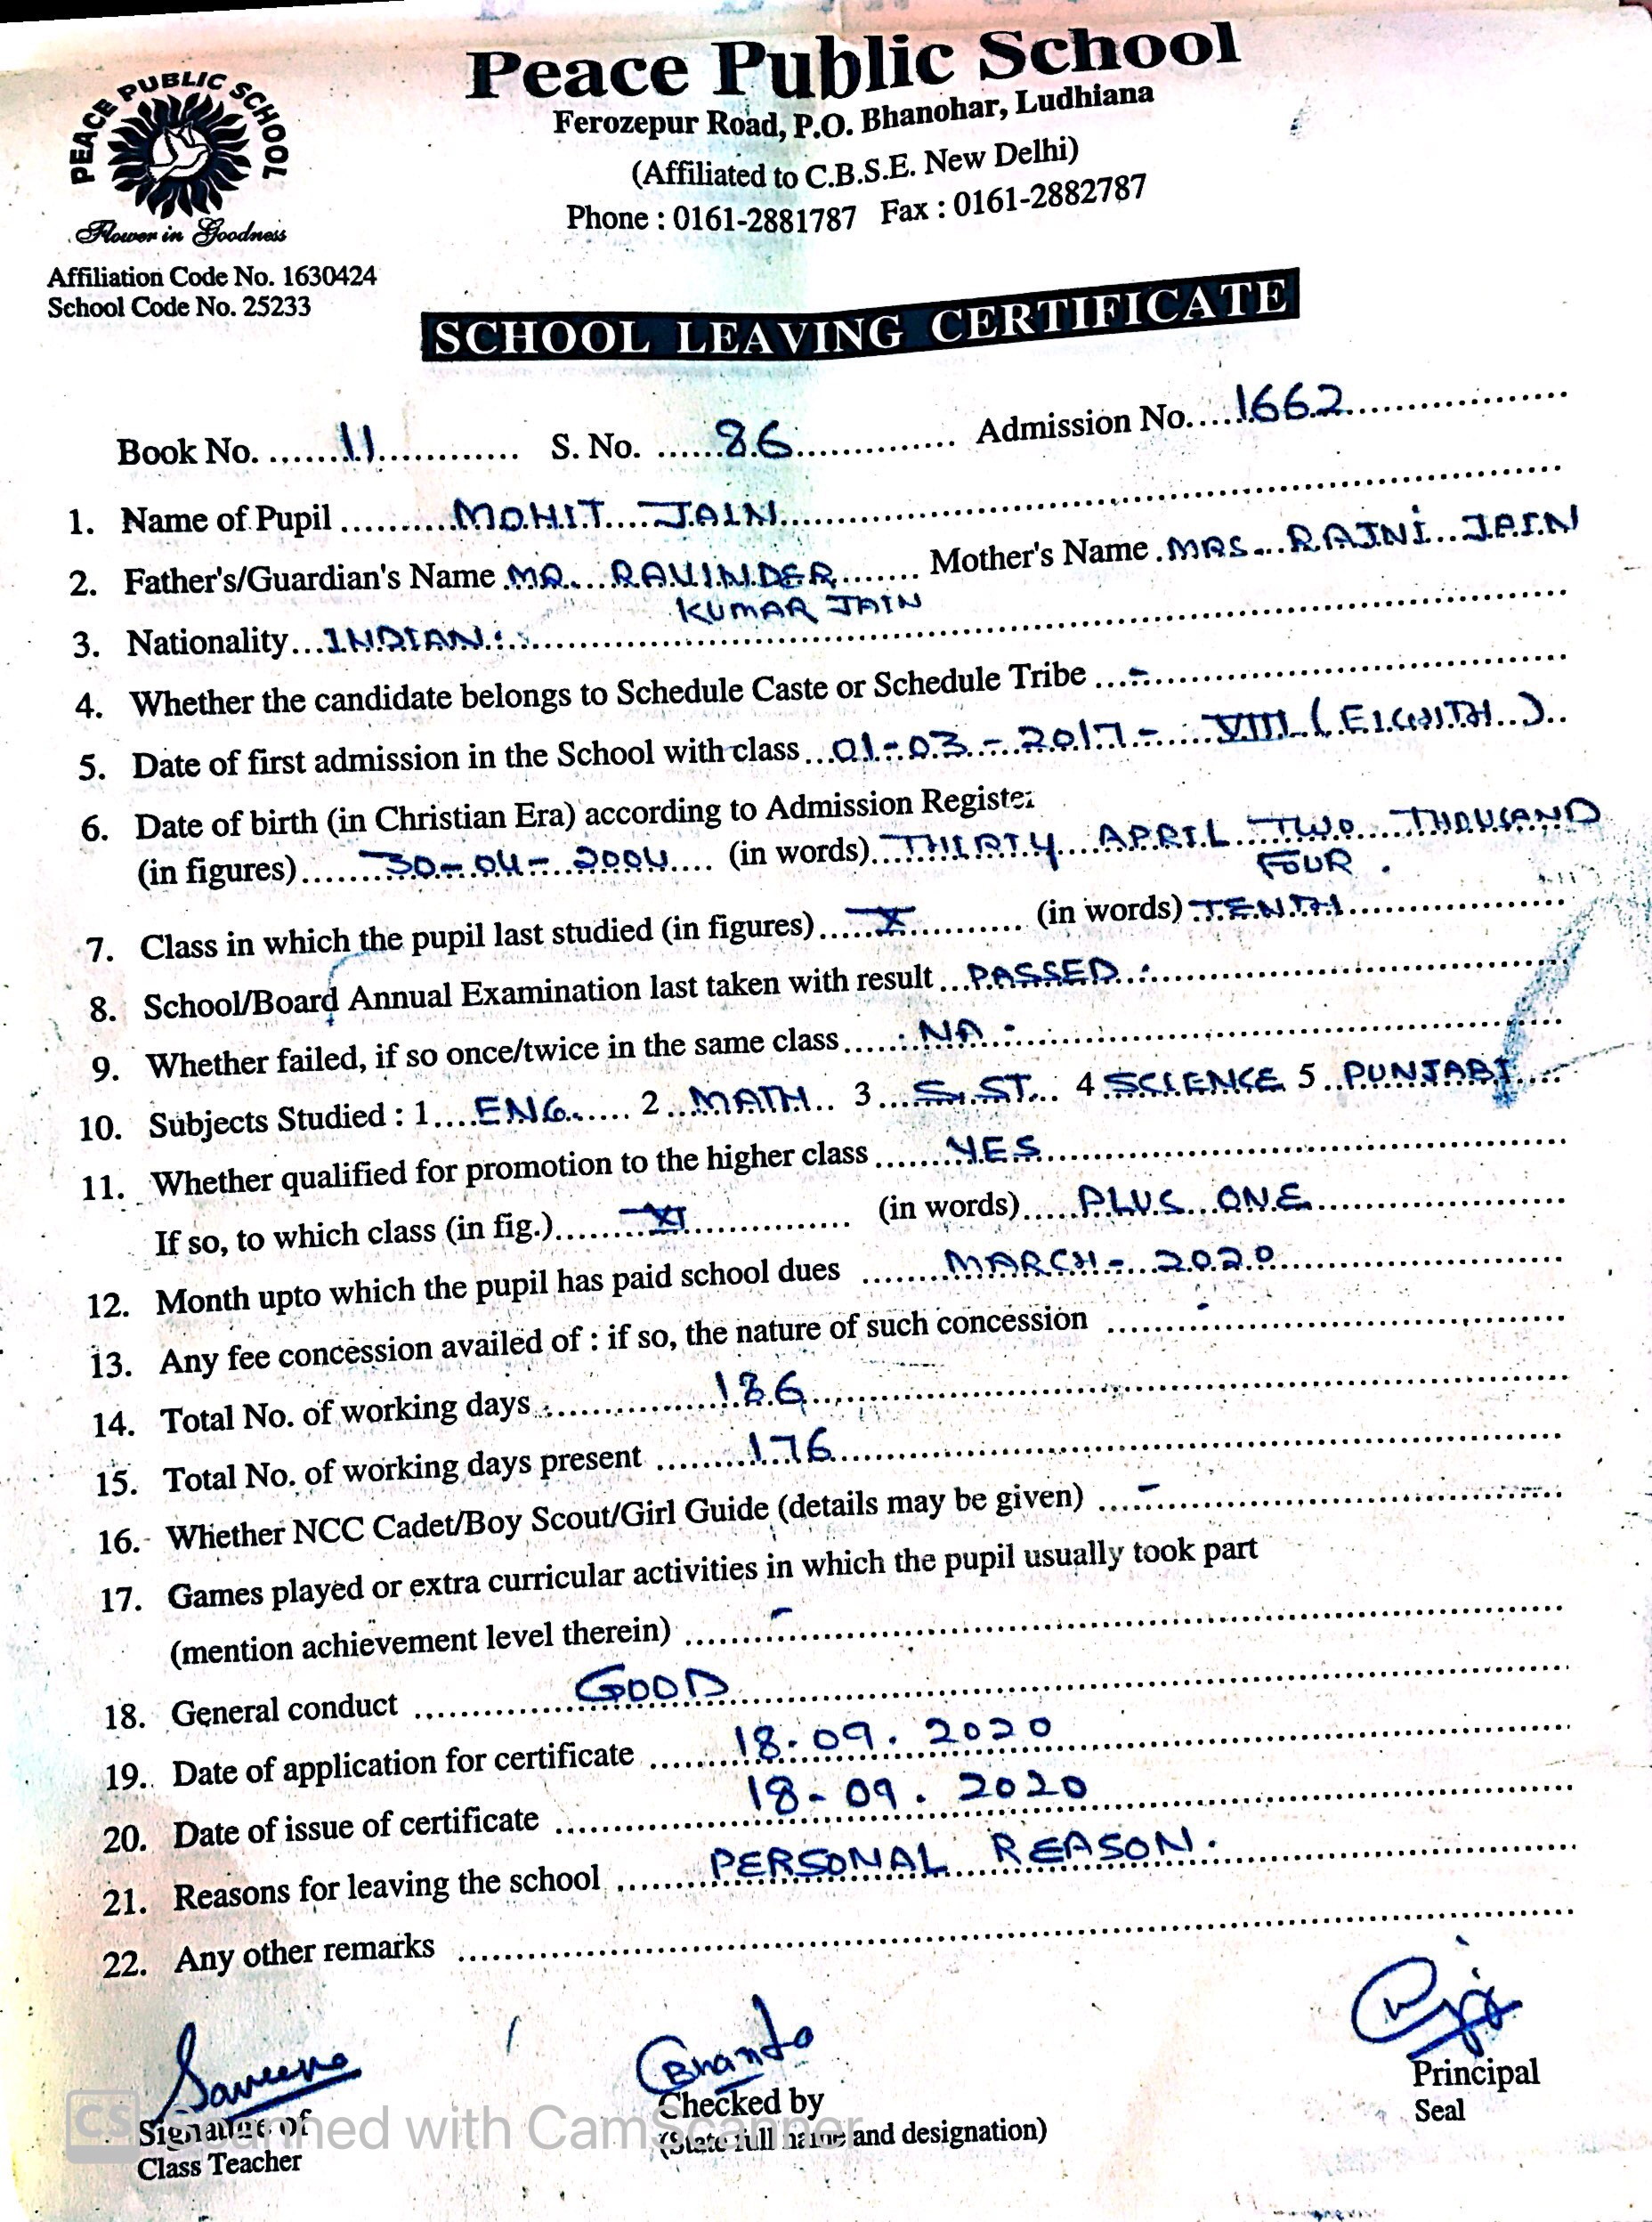 PEACE PUBLIC SCHOOL
Flower in Goodness
Affiliation Code No. 1630424
School Code No. 25233
Peace Public School
Ferozepur Road, P.O. Bhanohar, Ludhiana
(Affiliated to C.B.S.E. New Delhi)
Phone : 0161-2881787 Fax : 0161-2882787
SCHOOL LEAVING CERTIFICATE
Book No. 11 S. No. 86 Admission No. 1662
1. Name of Pupil MOHIT JAIN
2. Father's/Guardian's Name MR. RAVINDER KUMAR JAIN Mother's Name MRS. RAJNI JAIN
3. Nationality INDIAN
4. Whether the candidate belongs to Schedule Caste or Schedule Tribe -
5. Date of first admission in the School with class 01-03-2017 - VIII (EIGHTH)
6. Date of birth (in Christian Era) according to Admission Register
(in figures) 30-04-2004 (in words) THIRTY APRIL TWO THOUSAND FOUR.
7. Class in which the pupil last studied (in figures) X (in words) TENTH
8. School/Board Annual Examination last taken with result PASSED
9. Whether failed, if so once/twice in the same class NA
10. Subjects Studied : 1 ENG. 2 MATH 3 S.ST. 4 SCIENCE 5 PUNJABI
11. Whether qualified for promotion to the higher class YES
If so, to which class (in fig.) XI (in words) PLUS ONE
12. Month upto which the pupil has paid school dues MARCH - 2020
13. Any fee concession availed of : if so, the nature of such concession -
14. Total No. of working days 186
15. Total No. of working days present 176
16. Whether NCC Cadet/Boy Scout/Girl Guide (details may be given) -
17. Games played or extra curricular activities in which the pupil usually took part
(mention achievement level therein) -
18. General conduct GOOD
19. Date of application for certificate 18.09.2020
20. Date of issue of certificate 18-09.2020
21. Reasons for leaving the school PERSONAL REASON.
22. Any other remarks
Signature of
Class Teacher
Checked by
(State full name and designation)
Principal
Seal
CS Scanned with CamScanner